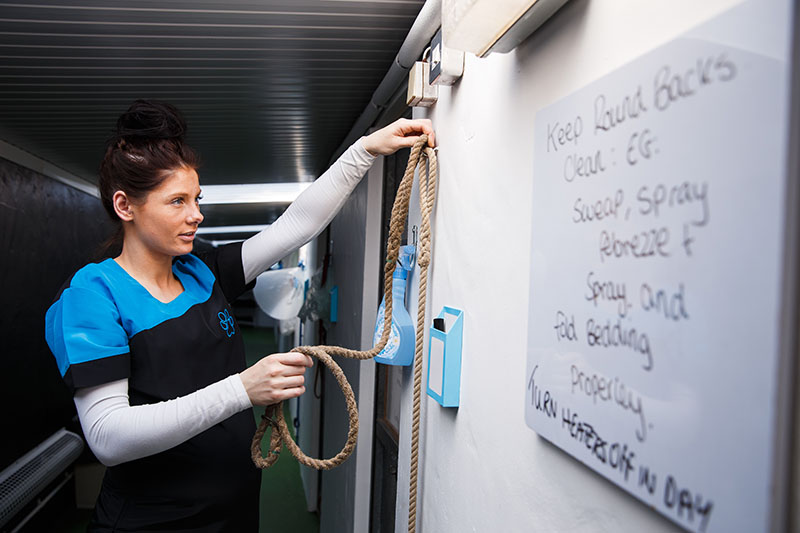 Keep Round Backs
Clean: EG:
Sweap, Spray
febrezze +
Spray and
fold Bedding
properley.
TURN HEATERS OFF IN DAY